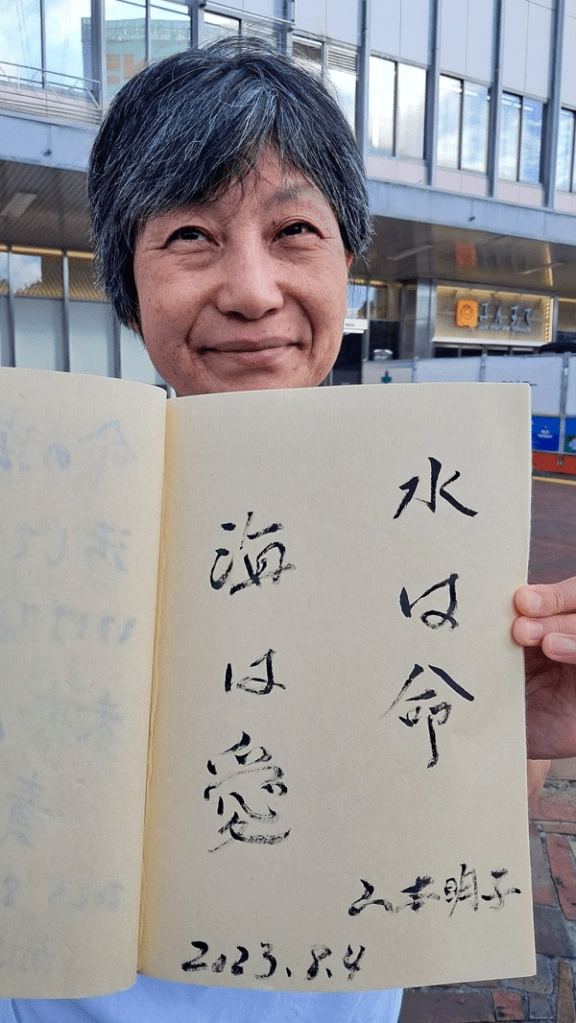 水は命
海は愛
山本明子
2023.8.4